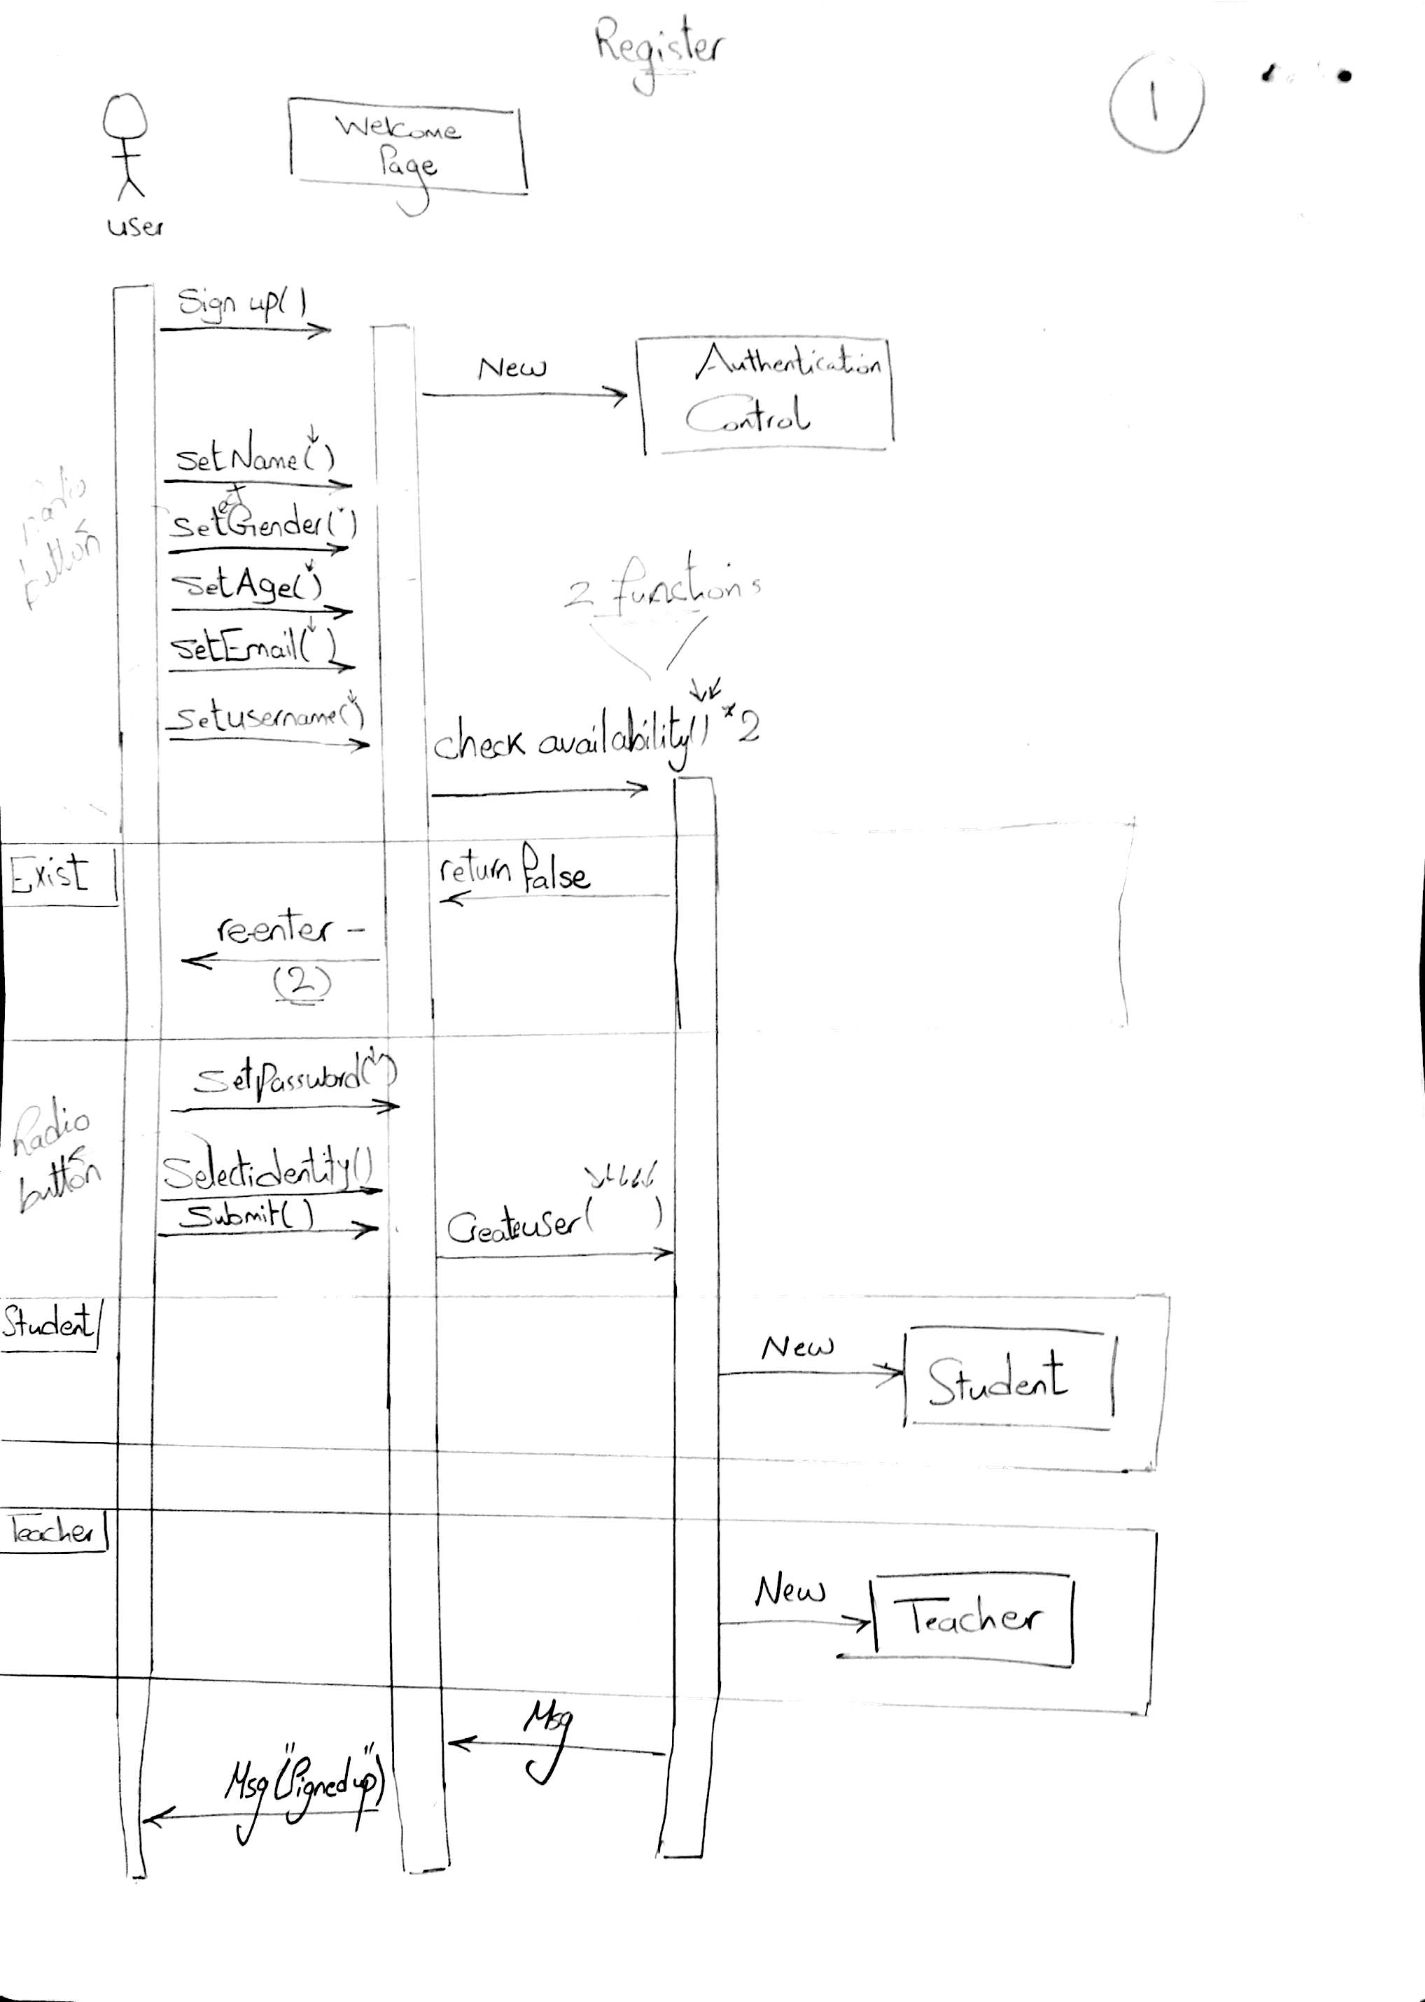 Register
1
Welcome
Page
user
Sign up()
New
Authentication
Control
setName()
radio
button
ect
setGender()
setAge()
2 functions
setEmail()
setusername()
check availability() *2
Exist
return false
re-enter -
(2)
setpassword()
Radio
button
Selectidentity()
Submit()
Createuser( )
Student
New
Student
Teacher
New
Teacher
Msg
Msg("Signed up")